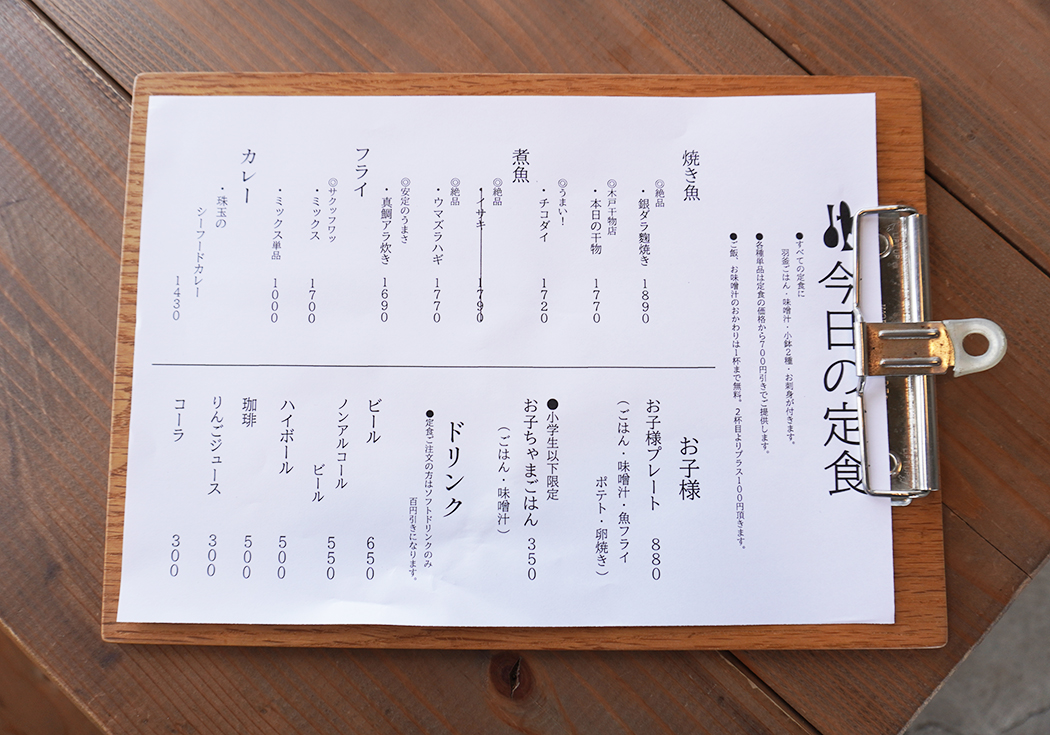 今日の定食
●すべての定食に
羽釜ごはん・味噌汁・小鉢2種・お刺身が付きます。
●各種単品は定食の価格から700円引きでご提供します。
●ご飯、お味噌汁のおかわりは1杯まで無料。2杯目よりプラス100円頂きます。
焼き魚
◎絶品
・銀ダラ麹焼き 1890
◎木戸干物店
・本日の干物 1770
◎うまい！
・チコダイ 1720
煮魚
◎絶品
・イサキ 1790
◎絶品
・ウマズラハギ 1770
◎安定のうまさ
・真鯛アラ炊き 1690
フライ
◎サクッフワッ
・ミックス 1700
・ミックス単品 1000
カレー
・珠玉の
シーフードカレー
1430
お子様
お子様プレート 880
（ごはん・味噌汁・魚フライ
ポテト・卵焼き）
●小学生以下限定
お子ちゃまごはん 350
（ごはん・味噌汁）
ドリンク
●定食ご注文の方はソフトドリンクのみ
百円引きになります。
ビール 650
ノンアルコール
ビール 550
ハイボール 500
珈琲 500
りんごジュース 300
コーラ 300